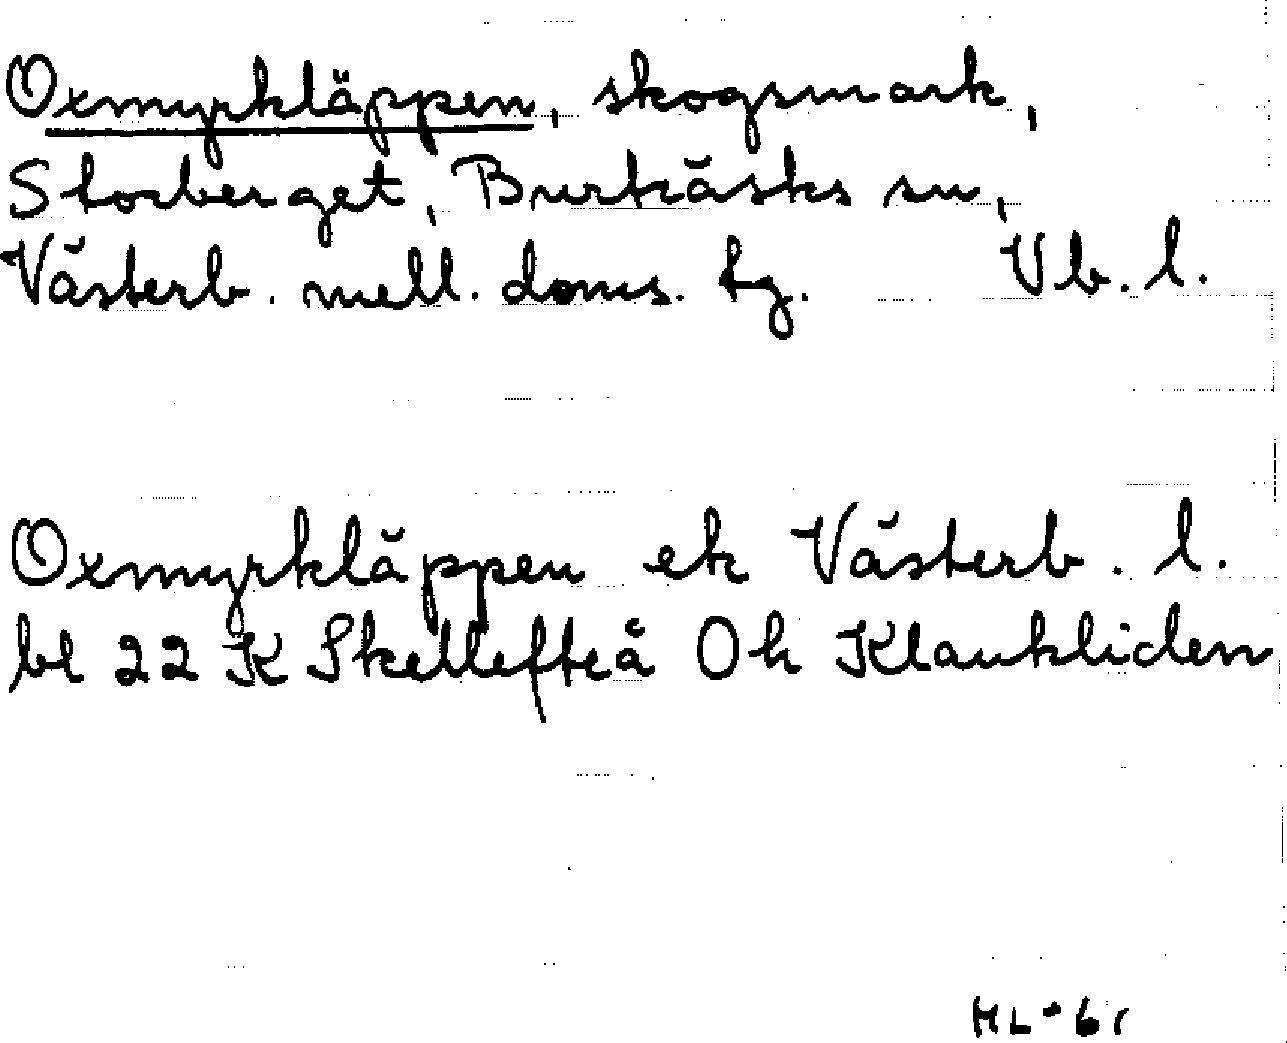 Oxmyrkläppen, skogsmark,
Storberget, Burträsks sn,
Västerb. mell. doms. tg. Vb. l.
Oxmyrkläppen ek Västerb. l.
bl 22 K Skellefteå Oh Klaukliden
ML-61